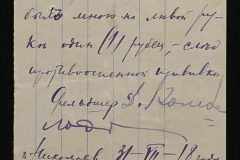 было много на левой ру-
ке один (1) рубец, – след
противооспенной прививки
Фельдшер
г. Николаев 31–VII–18 года